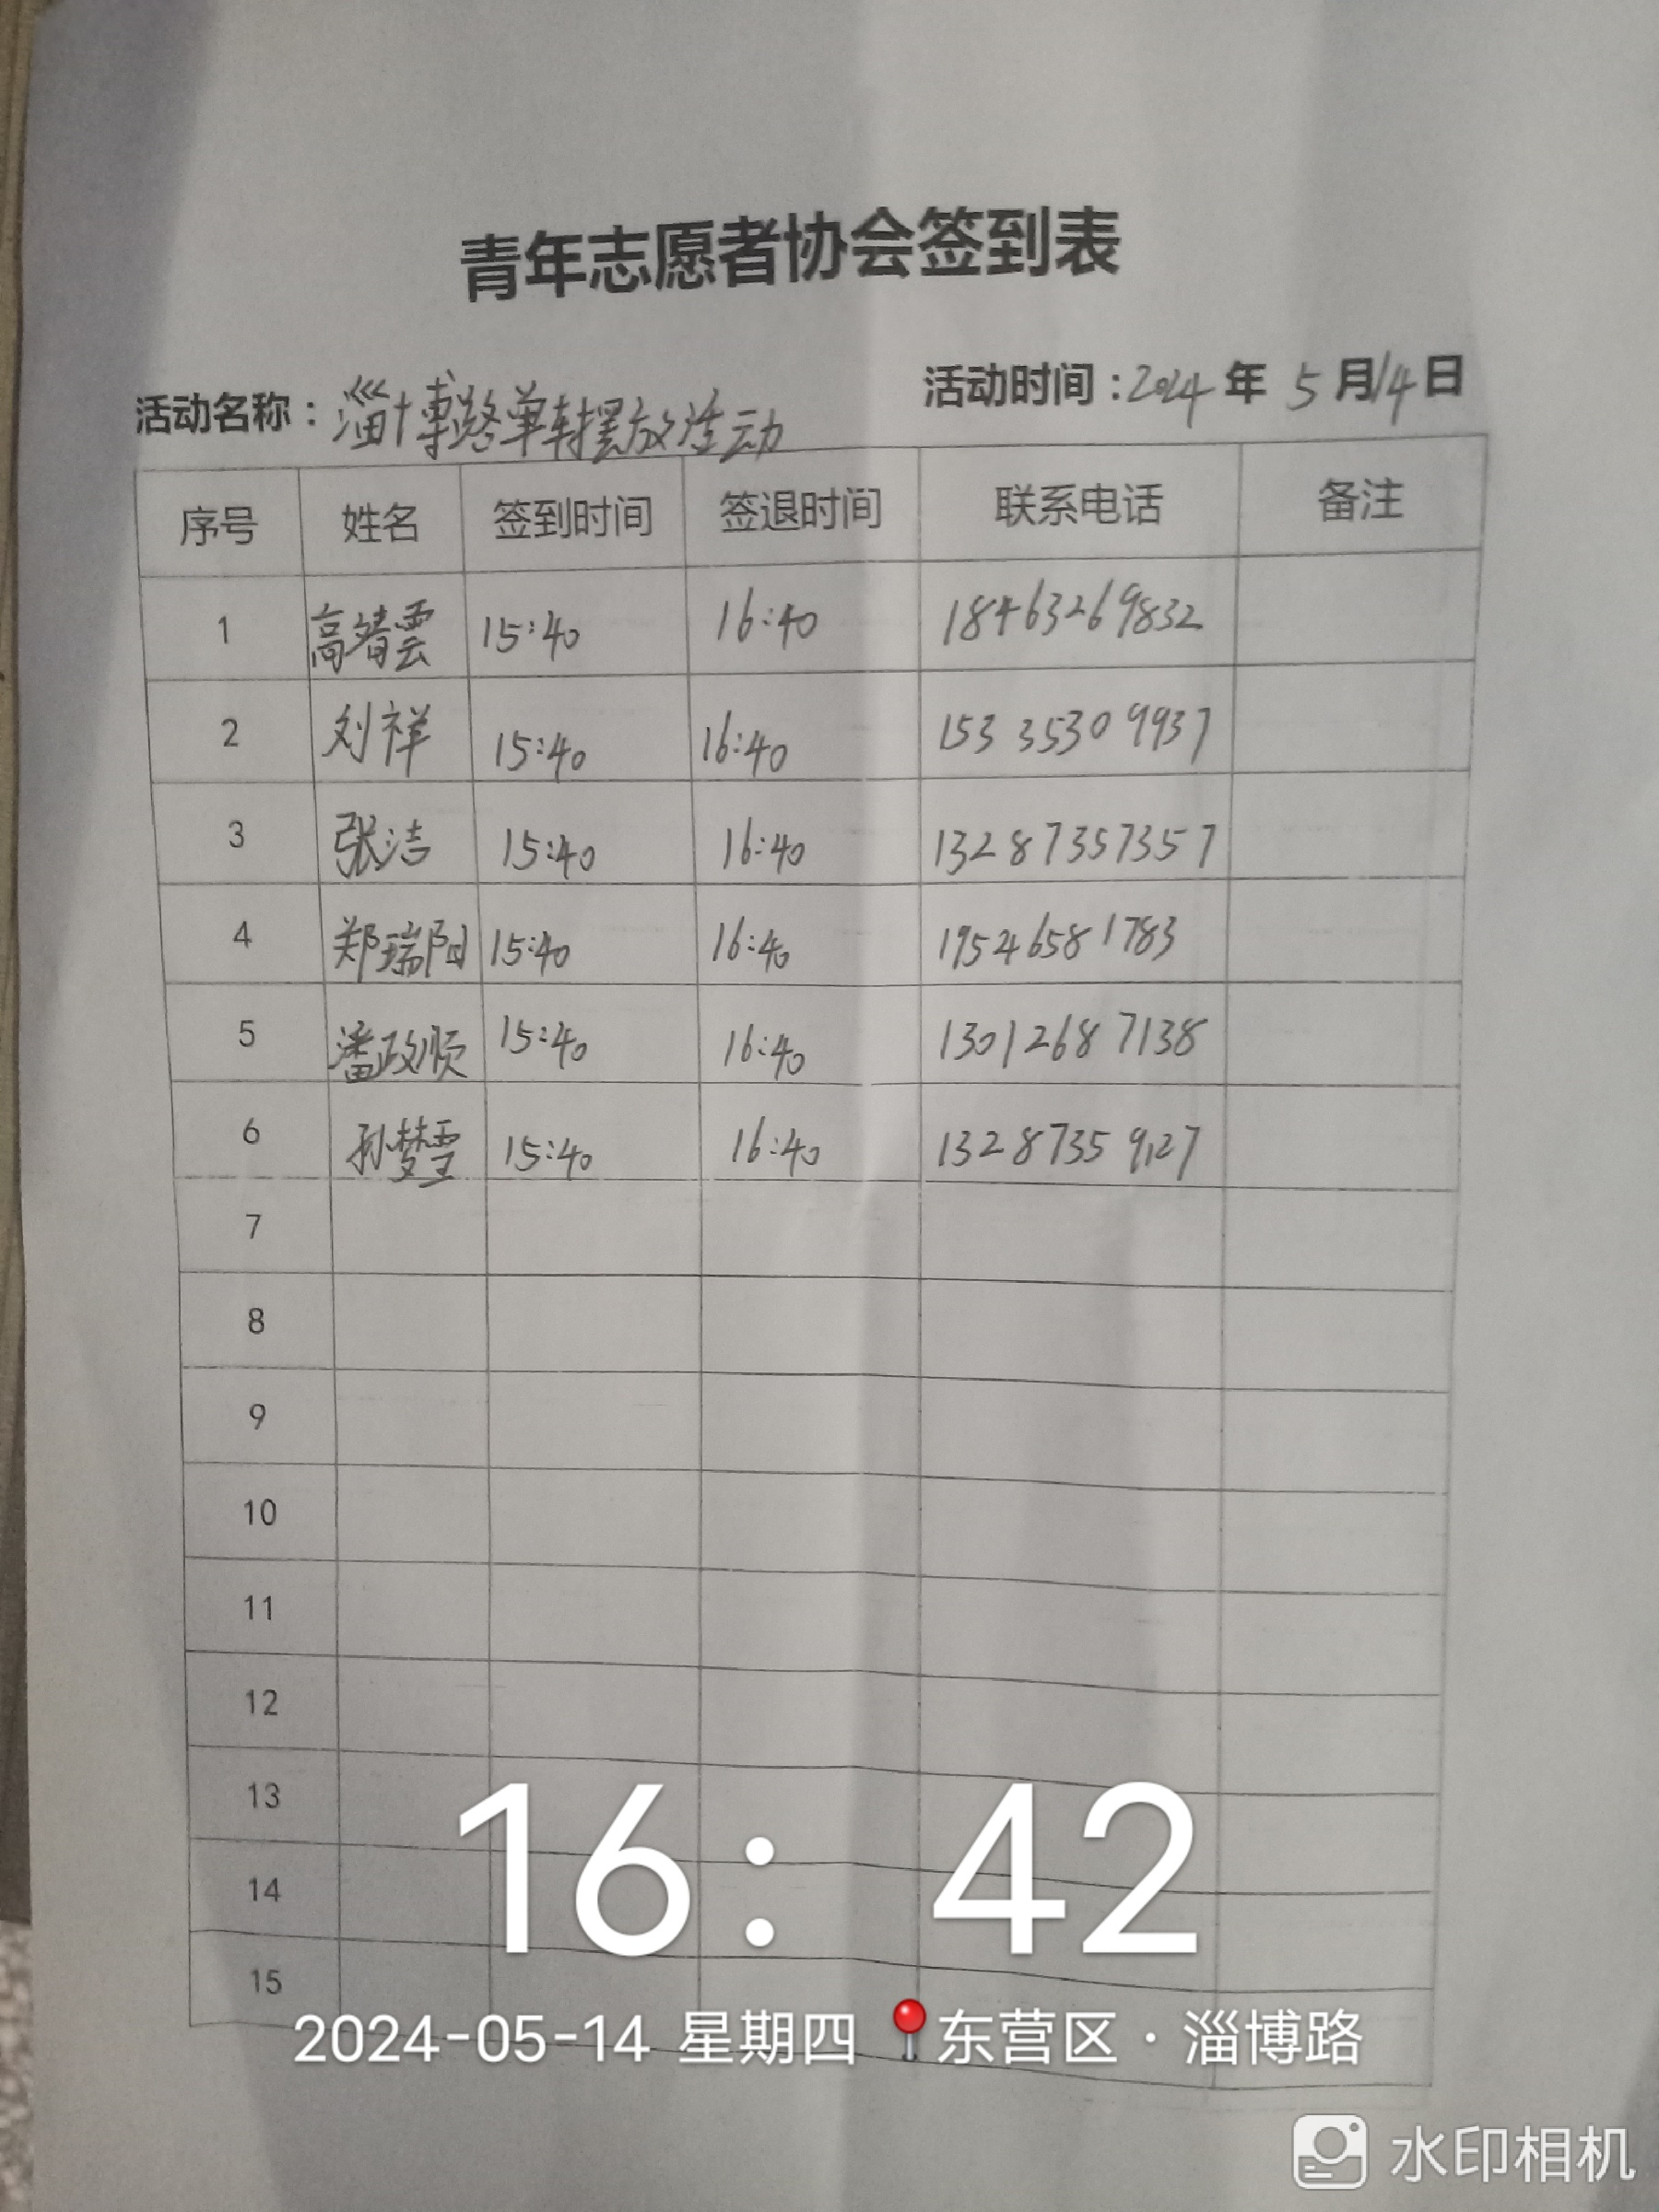 青年志愿者协会签到表
活动名称：淄博路单车摆放活动 活动时间：2024年 5月14日
序号 姓名 签到时间 签退时间 联系电话 备注
1 高靖雲 15:40 16:40 18463269832
2 刘祥 15:40 16:40 15335309937
3 张洁 15:40 16:40 13287357357
4 郑瑞阳 15:40 16:40 19546581783
5 潘政顺 15:40 16:40 13012687138
6 孙梦雪 15:40 16:40 13287359127
7
8
9
10
11
12
13
14
15
16：42
2024-05-14 星期四 东营区·淄博路
水印相机